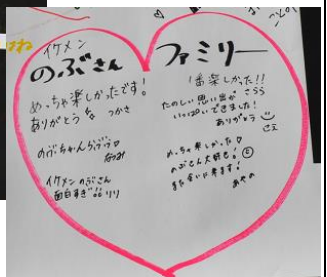 イケメン
のぶさん ファミリー
めっちゃ楽しかったです!
ありがとうな つかさ
のぶちゃんラブラブ♡
なつみ
イケメンのぶさん
面白すぎ りり
1番楽しかった!!
さらら
たのしい思い出が
いっぱいできました!
ありがとう
さえ
めっちゃ楽しかった♡
のぶさん大好き!
また会いに来ます!
あやの